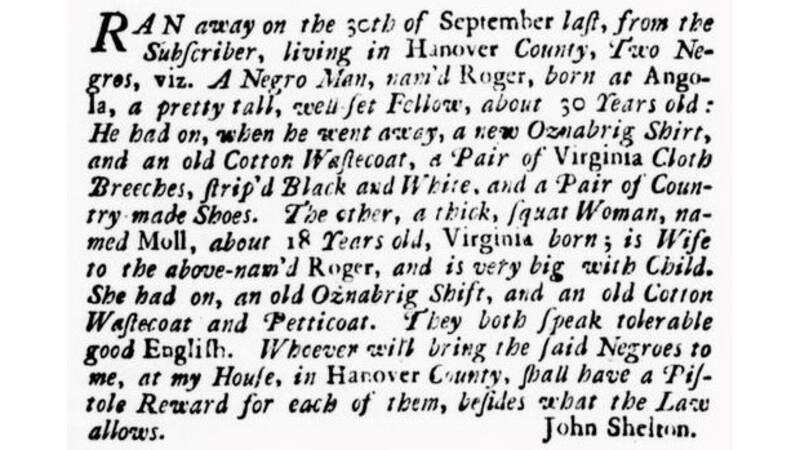 RAN away on the 30th of September laſt, from the
Subſcriber, living in Hanover County, Two Ne-
gros, viz. A Negro Man, nam'd Roger, born at Ango-
la, a pretty tall, well-ſet Fellow, about 30 Years old:
He had on, when he went away, a new Oznabrig Shirt,
and an old Cotton Waſtecoat, a Pair of Virginia Cloth
Breeches, ſtrip'd Black and White, and a Pair of Coun-
try made Shoes. The other, a thick, ſquat Woman, na-
med Moll, about 18 Years old, Virginia born; is Wife
to the above-nam'd Roger, and is very big with Child.
She had on, an old Oznabrig Shift, and an old Cotton
Waſtecoat and Petticoat. They both ſpeak tolerable
good Engliſh. Whoever will bring the ſaid Negroes to
me, at my Houſe, in Hanover County, ſhall have a Piſ-
tole Reward for each of them, beſides what the Law
allows. John Shelton.